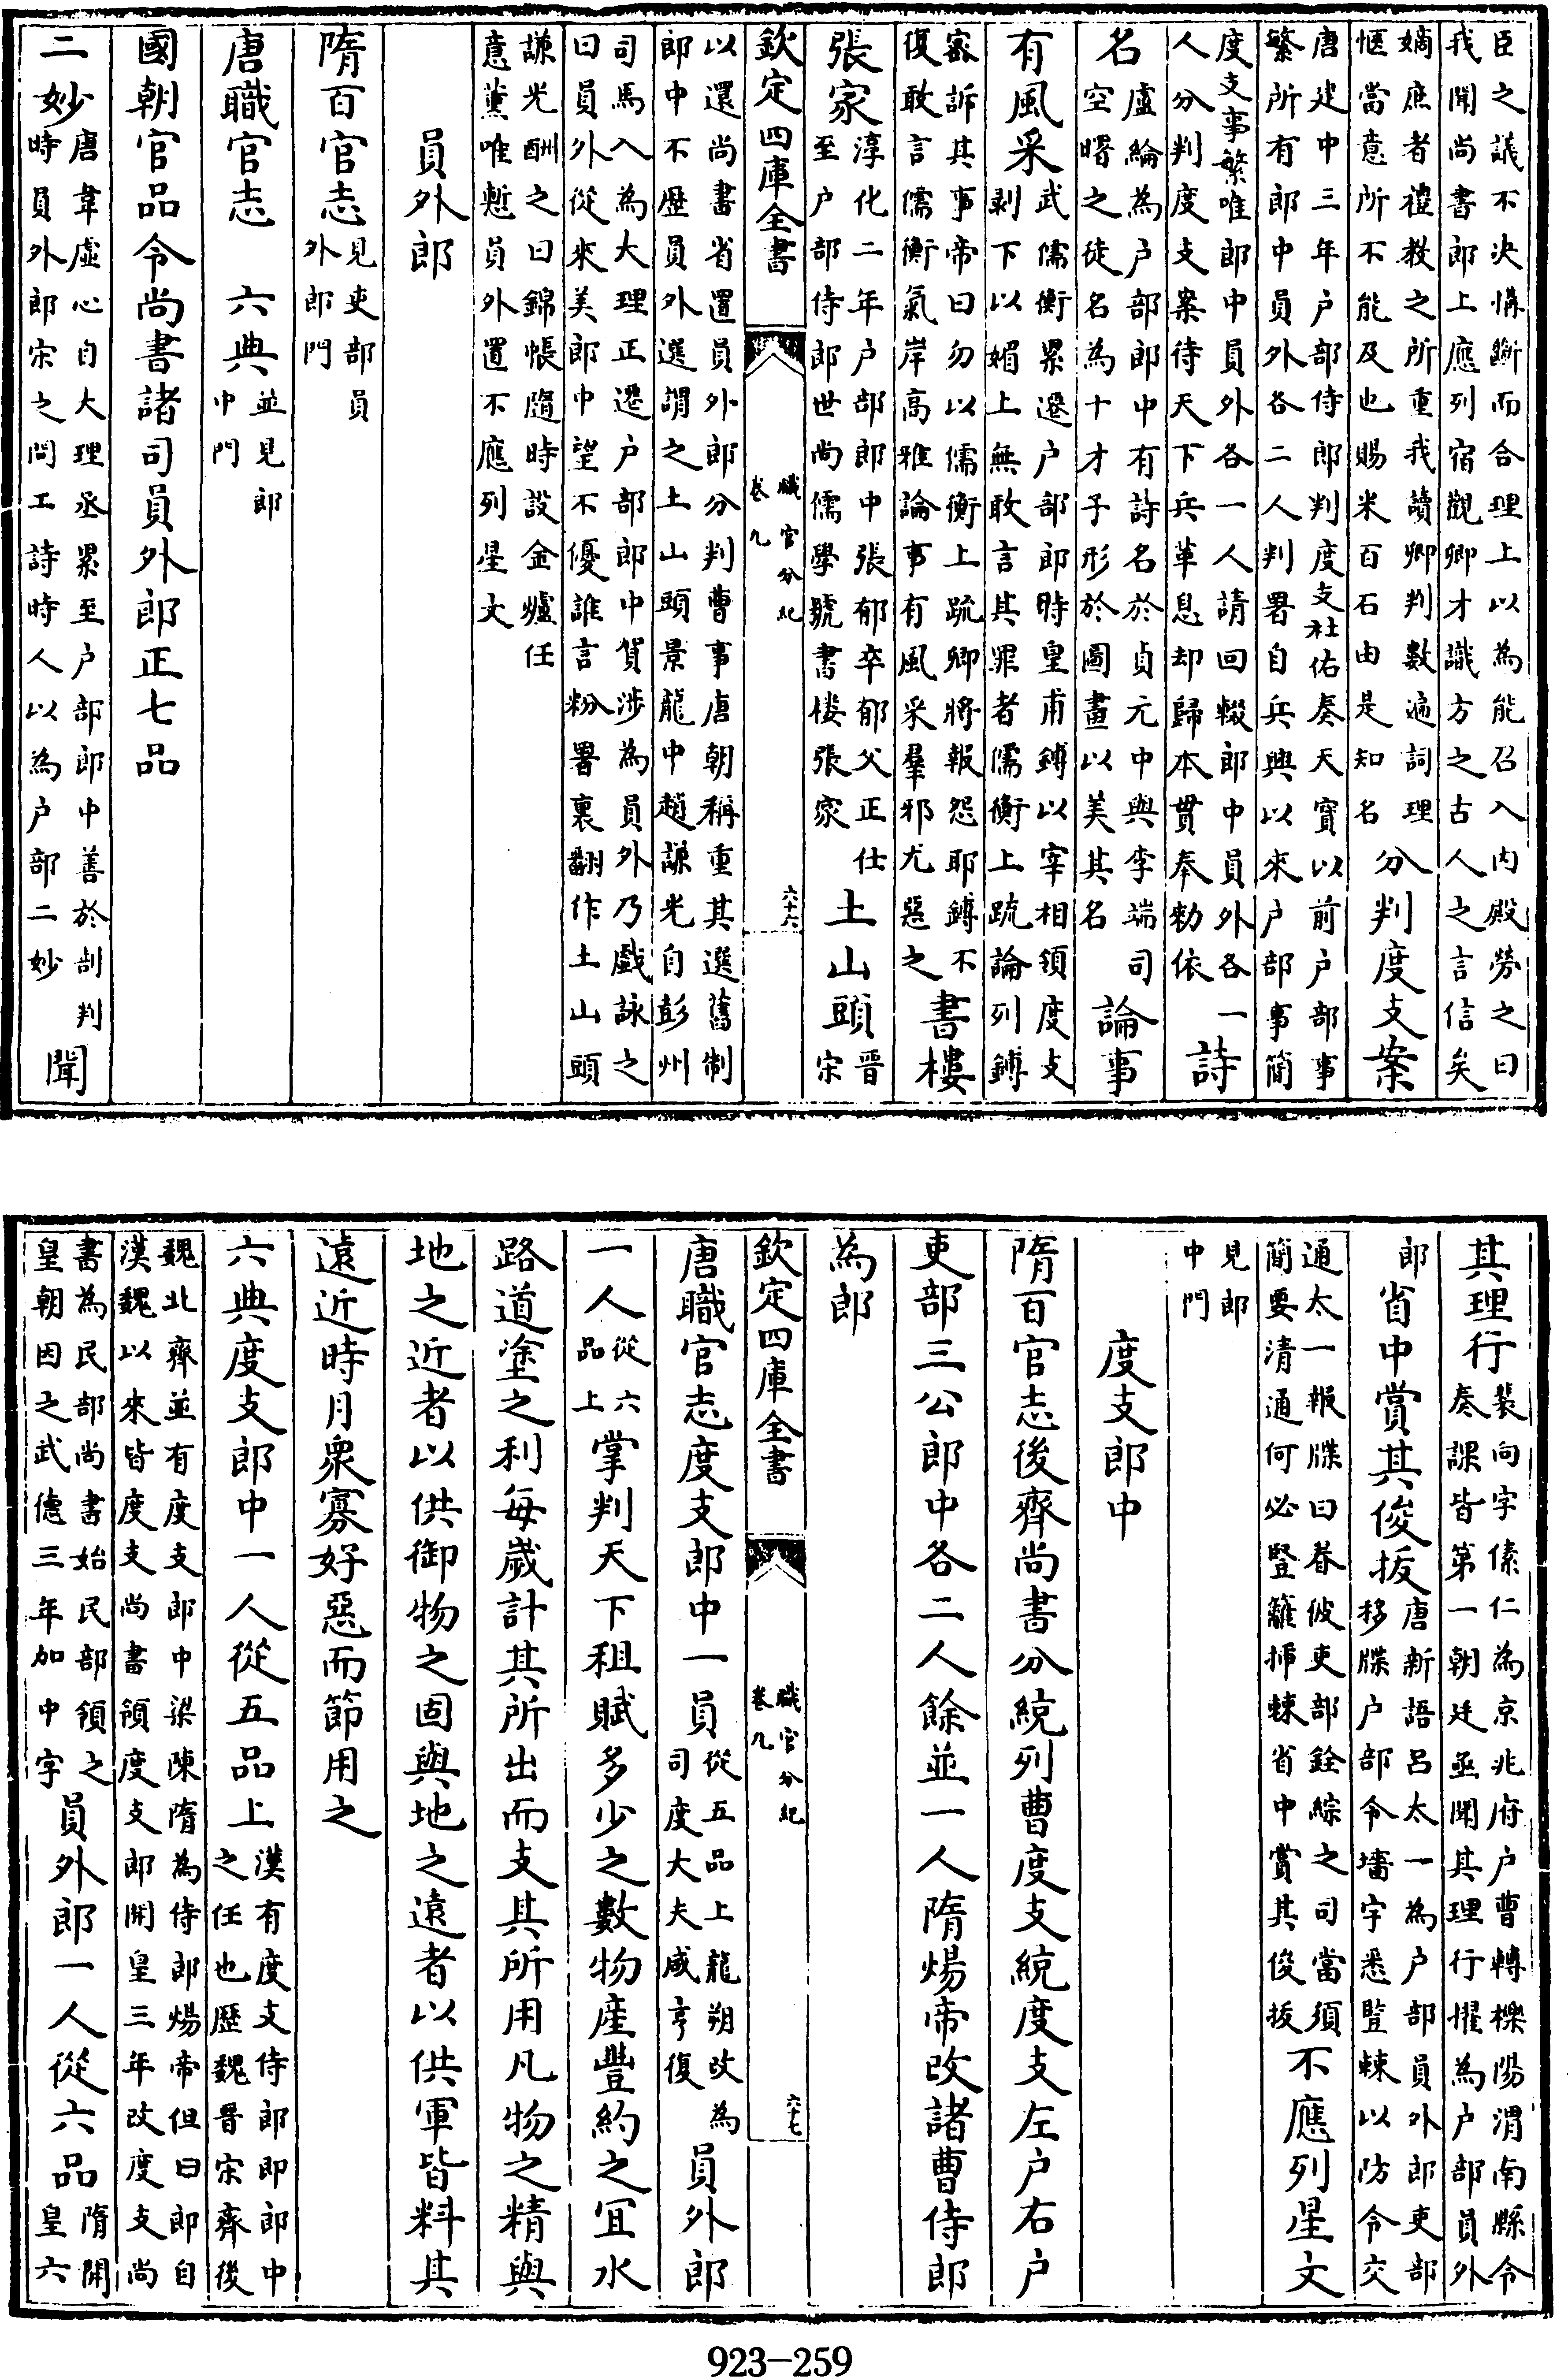 臣之議不決構斷而合理上以為能召入內殿勞之曰
我聞尚書郎上應列宿觀卿才識方之古人之言信矣
嫡庶者禮教之所重我讀卿判數遍詞理
愜當意所不能及也賜米百石由是知名
分判度支案
唐建中三年户部侍郎判度支杜佑奏天寶以前户部事
繁所有郎中員外各二人判署自兵興以來户部事簡
度支事繁唯郎中員外各一人請回輟郎中員外各一
人分判度支案待天下兵革息却歸本貫奉勅依
詩
名
盧綸為户部郎中有詩名於貞元中與李端司
空曙之徒名為十才子形於圖畫以美其名
論事
有風采
武儒衡累遷户部郎時皇甫鎛以宰相領度支
剥下以媚上無敢言其罪者儒衡上疏論列鎛
密訴其事帝曰勿以儒衡上疏卿將報怨耶鎛不
復敢言儒衡氣岸高雅論事有風采羣邪尤惡之
書樓
張家
淳化二年户部郎中張郁卒郁父正仕
至户部侍郎世尚儒學號書楼張家
土山頭
晋
宋
欽定四庫全書
職官分紀
卷九
六十六
以還尚書省置員外郎分判曹事唐朝稱重其選舊制
郎中不歴員外選謂之土山頭景龍中趙謙光自彭州
司馬入為大理正遷户部郎中賀涉為員外乃戲詠之
曰員外從來美郎中望不優誰言粉署裏翻作土山頭
謙光酬之曰錦帳隨時設金爐任
意薰唯慙員外置不應列星文
員外郎
隋百官志
見吏部員
外郎門
唐職官志 六典
並見郎
中門
國朝官品令尚書諸司員外郎正七品
二妙
唐韋虚心自大理丞累至户部郎中善於剖判
時員外郎宋之問工詩時人以為户部二妙
聞
其理行
裴向字傃仁為京兆府户曹轉櫟陽渭南縣令
奏課皆第一朝廷亟聞其理行擢為户部員外
郎
省中賞其俊拔
唐新語吕太一為户部員外郎吏部
移牒户部令墻宇悉豎棘以防令交
通太一報牒曰眷彼吏部銓綜之司當須
簡要清通何必豎籬揷棘省中賞其俊拔
不應列星文
見郎
中門
度支郎中
隋百官志後齊尚書分統列曹度支統度支左户右户
吏部三公郎中各二人餘並一人隋煬帝改諸曹侍郎
為郎
欽定四庫全書
職官分紀
卷九
六十七
唐職官志度支郎中一員
從五品上龍朔改為
司度大夫咸亨復
員外郎
一人
從六
品上
掌判天下租賦多少之數物產豐約之宜水
路道塗之利每歲計其所出而支其所用凡物之精與
地之近者以供御物之固與地之遠者以供軍皆料其
遠近時月衆寡好惡而節用之
六典度支郎中一人從五品上
漢有度支侍郎即郎中
之任也歴魏晋宋齊後
魏北齊並有度支郎中梁陳隋為侍郎煬帝但曰郎自
漢魏以來皆度支尚書領度支郎開皇三年改度支尚
書為民部尚書始民部領之
皇朝因之武德三年加中字
員外郎一人從六品
隋開
皇六
923-259